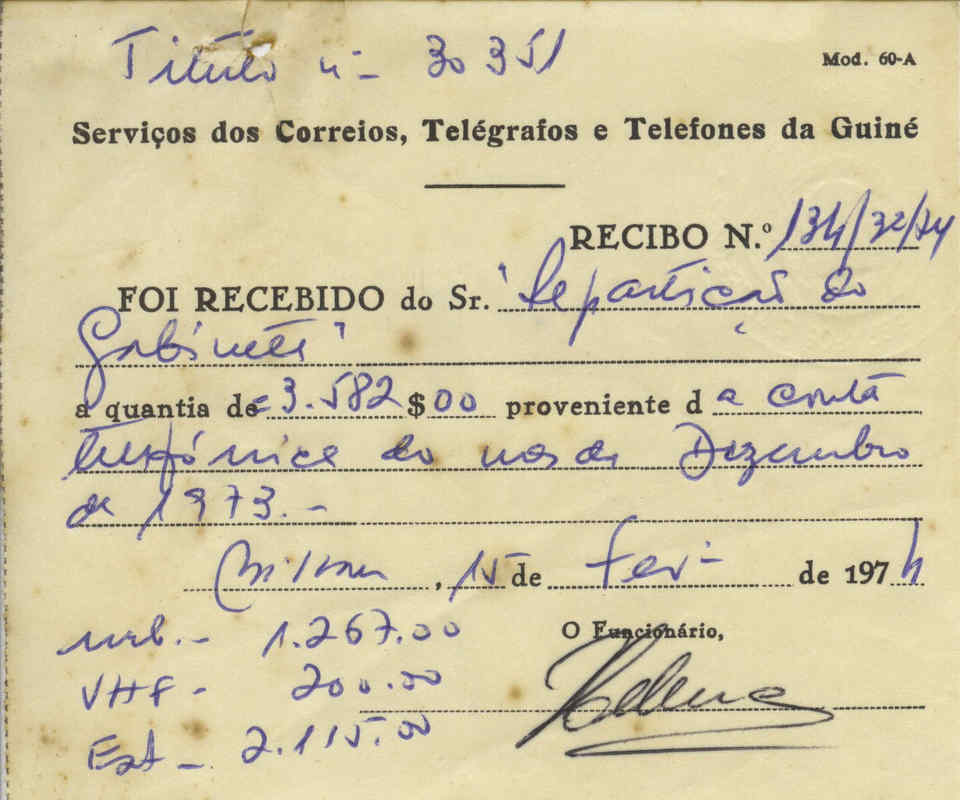 Título nº 30351
Mod. 60-A
Serviços dos Correios, Telégrafos e Telefones da Guiné
RECIBO N.º 134/32/74
FOI RECEBIDO do Sr. "Repartição do
Gabinete"
a quantia de 3.582$00 proveniente d a conta
telefónica do mês de Dezembro
de 1973.-
Bissau, 15 de Fevº de 1974
urb.- 1.267.00
O Funcionário,
VHF - 200.00
Ext - 2.115.00